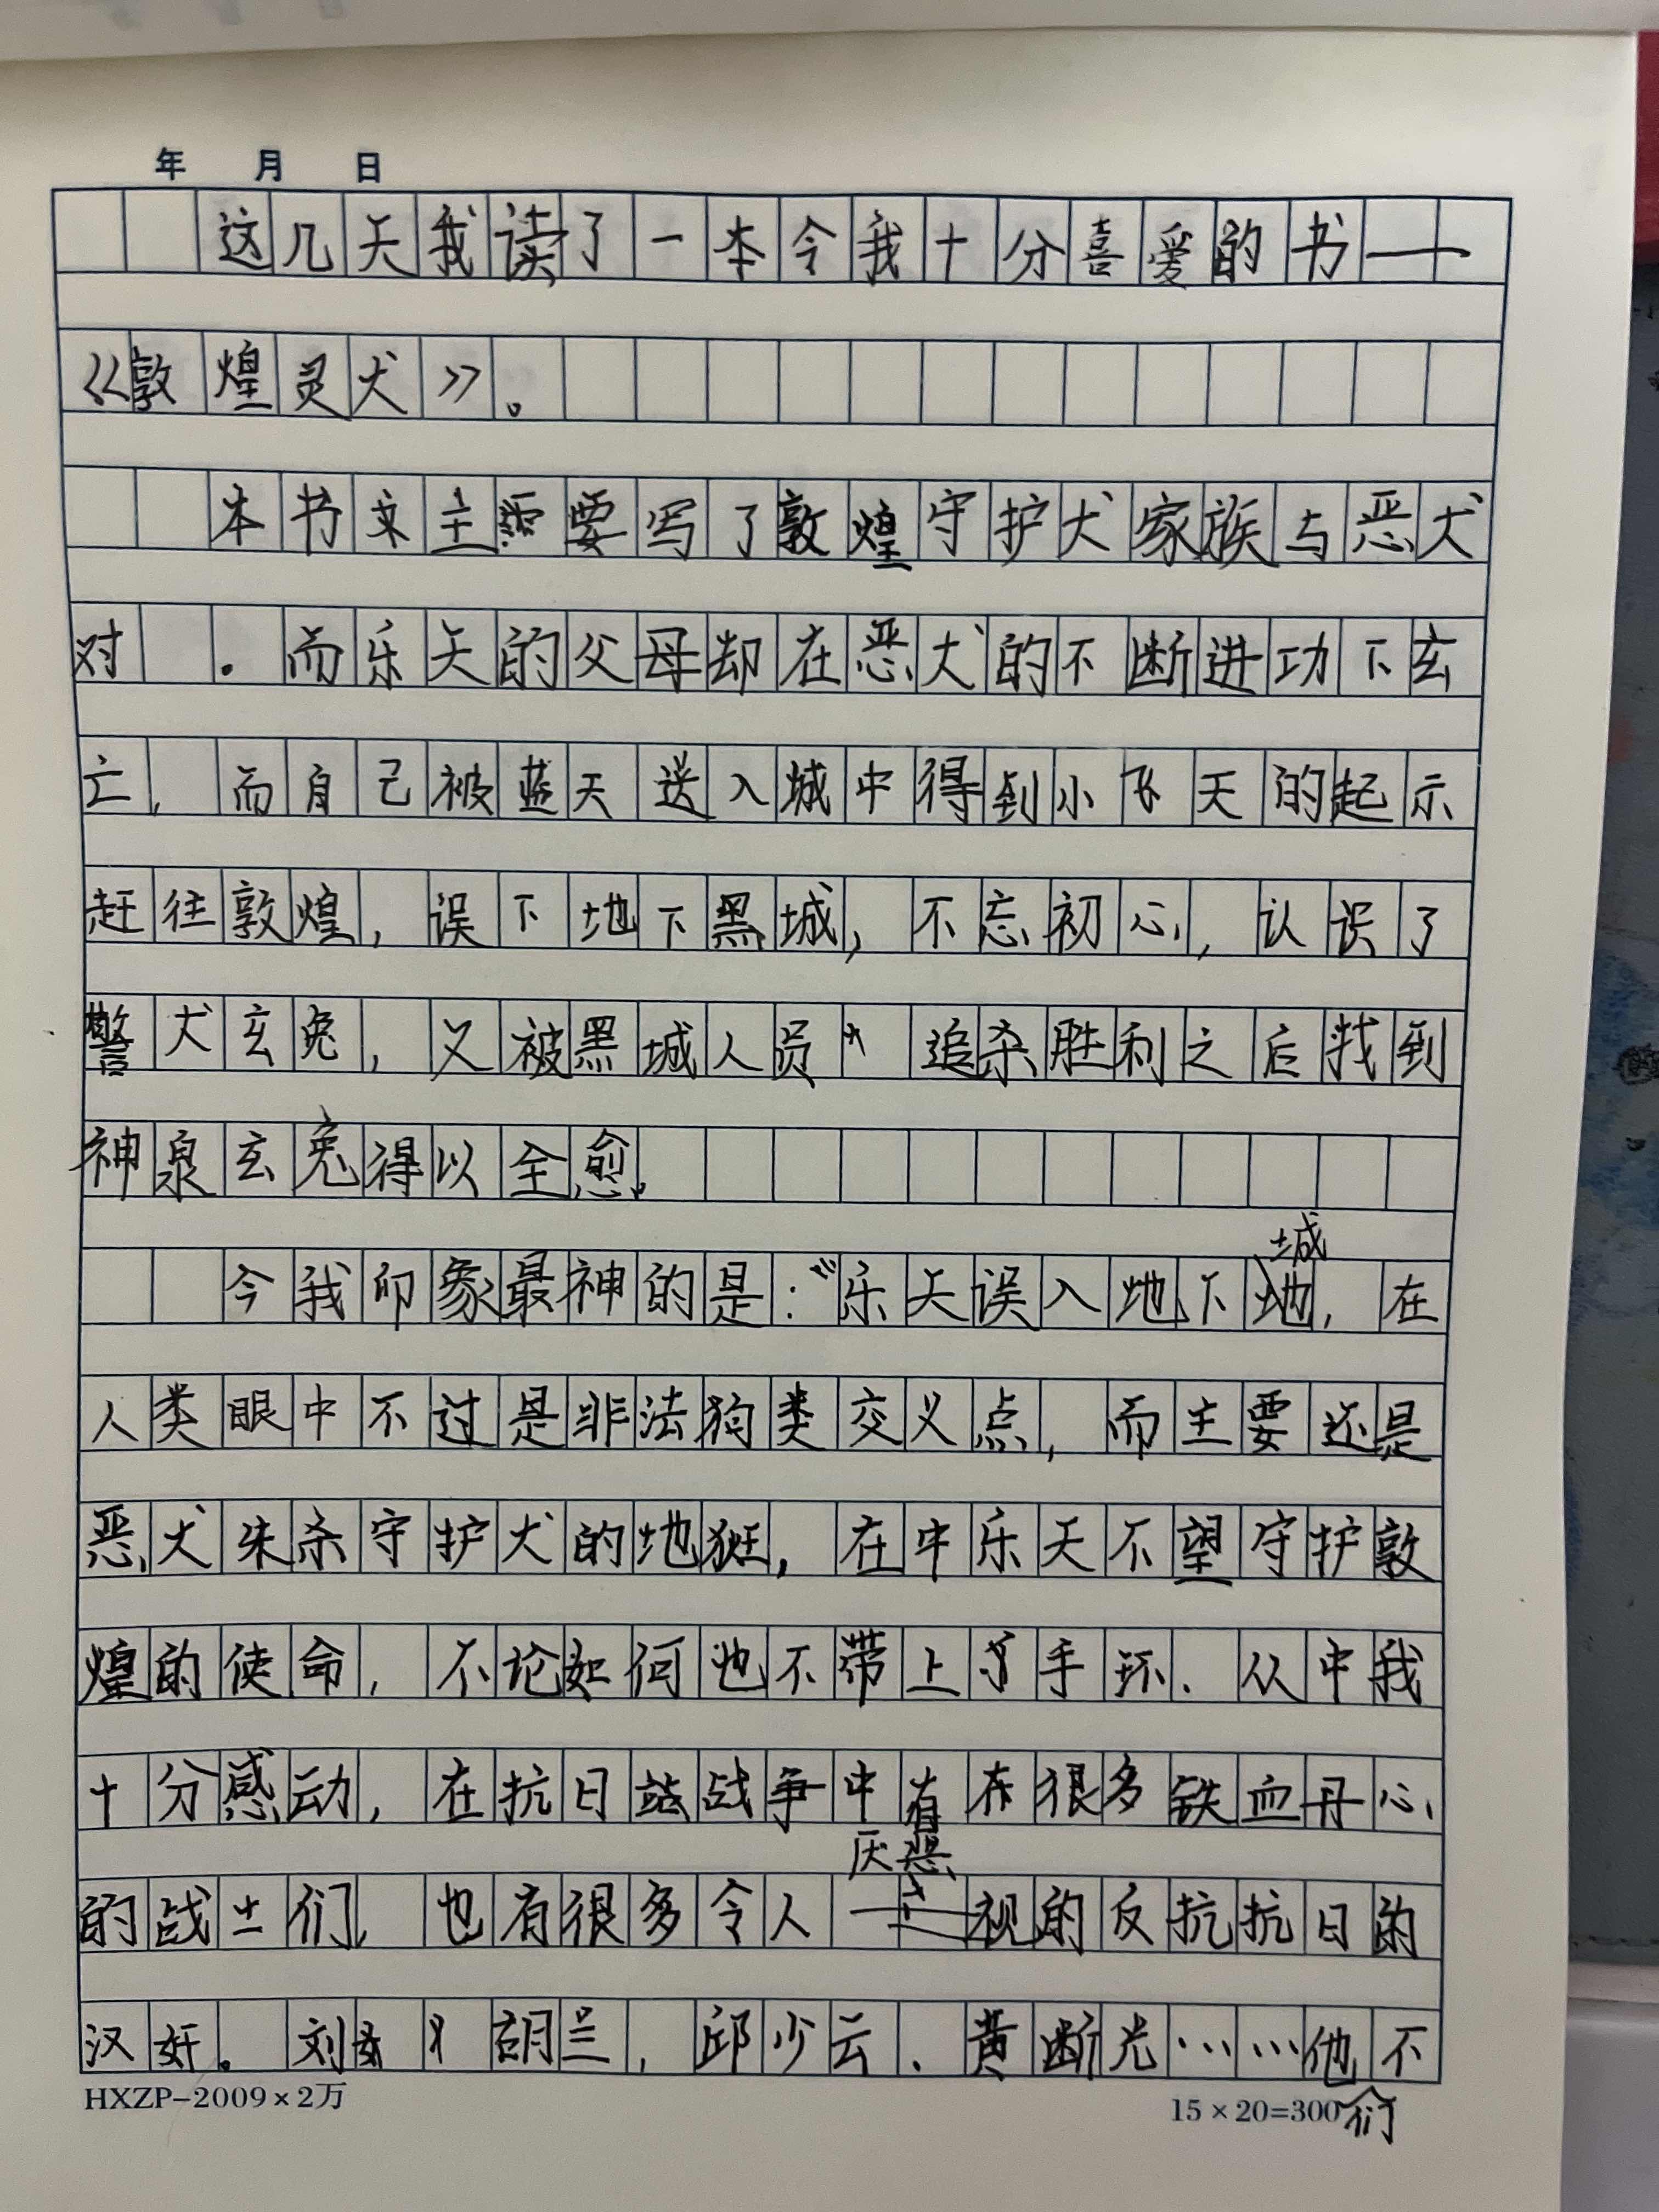 年 月 日
这几天我读了一本令我十分喜爱的书——
《敦煌灵犬》。
本书主要写了敦煌守护犬家族与恶犬
对 。而乐天的父母却在恶犬的不断进功下玄
亡,而自己被蓝天送入城中得到小飞天的起示
赶往敦煌,误下地下黑城,不忘初心,认识了
警犬玄兔,又被黑城人员 追杀胜利之后找到
神泉玄兔得以全愈。
今我印象最神的是:“乐天误入地下城,在
人类眼中不过是非法狗类交义点,而主要还是
恶犬朱杀守护犬的地狱,在中乐天不望守护敦
煌的使命,不论如何也不带上手环.从中我
十分感动,在抗日战争中有很多铁血丹心
的战士们,也有很多令人厌恶视的反抗抗日的
汉奸。刘胡兰,邱少云、黄断光……他们不
HXZP-2009×2万
15×20=300